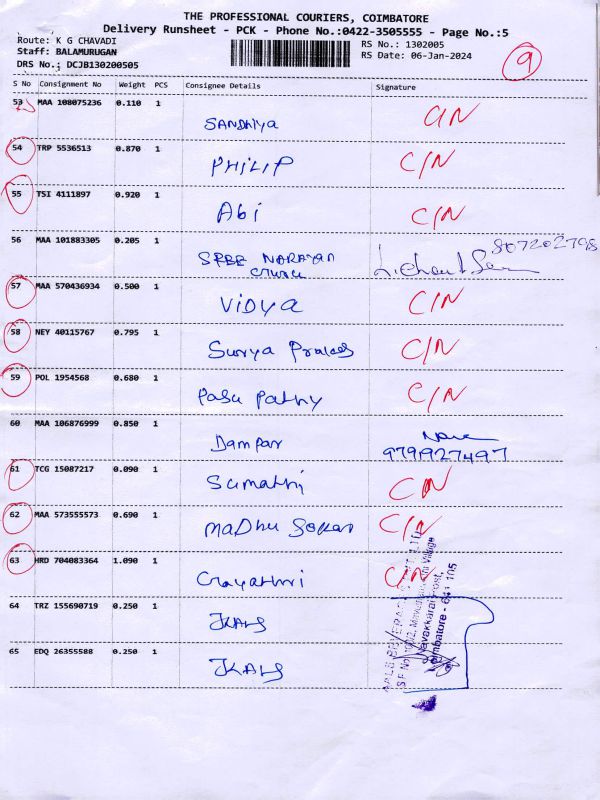 THE PROFESSIONAL COURIERS, COIMBATORE
Delivery Runsheet - PCK - Phone No.:0422-3505555 - Page No.:5
Route: K G CHAVADI
RS No.: 1302005
Staff: BALAMURUGAN
RS Date: 06-Jan-2024
DRS No.: DCJB130200505
9
S No Consignment No Weight PCS Consignee Details Signature
53 MAA 108075236 0.110 1 C/N
SANDHIYA
54 TRP 5536513 0.870 1 PHILIP C/N
55 TSI 4111897 0.920 1 Abi C/N
56 MAA 101883305 0.205 1 SREE NARAYAN 807202798
57 MAA 570436934 0.500 1 VIDYA C/N
58 NEY 40115767 0.795 1 Surya C/N
59 POL 1954568 0.680 1 Pasu Pathy C/N
60 MAA 106876999 0.850 1 Dampar
9791927497
61 TCG 15087217 0.090 1 Sumathi C/N
62 MAA 573555573 0.690 1 MADHU C/N
63 HRD 704083364 1.090 1 Gayathri C/N
64 TRZ 155690719 0.250 1
65 EDQ 26355588 0.250 1
Navakkarai Post,
Coimbatore - 641 105